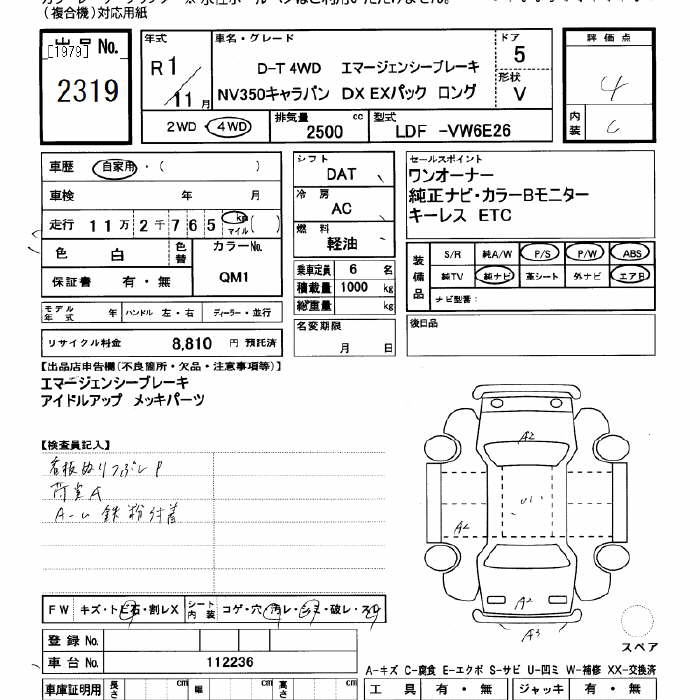 (複合機)対応用紙
出品 No.
[1979]
2319
年式
R1/11月
車名・グレード
D-T 4WD エマージェンシーブレーキ
NV350キャラバン DX EXパック ロング
ドア
5
形状
V
2WD・4WD
排気量
2500 cc
型式
LDF -VW6E26
評価点
4
内装
C
車歴 自家用・( )
車検 年 月
走行 11万2千765 km マイル ( )
色 白 色替
カラーNo.
QM1
保証書 有・無
モデル年式 年 ハンドル 左・右 ディーラー・並行
リサイクル料金 8,810 円 預託済
シフト
DAT
冷房
AC
燃料
軽油
乗車定員 6 名
積載量 1000 kg
総重量 kg
名変期限
月 日
セールスポイント
ワンオーナー
純正ナビ・カラーBモニター
キーレス ETC
装備品
S/R 純A/W P/S P/W ABS
純TV 純ナビ 革シート 外ナビ エアB
ナビ型番:
後日品
【出品店申告欄(不良箇所・欠品・注意事項等)】
エマージェンシーブレーキ
アイドルアップ メッキパーツ
【検査員記入】
看板ぬりつぶしP
荷室A
A-U 鉄粉付着
A2
U1
A2
A2
A3
スペア
FW キズ・トビ石・割レX シート内装 コゲ・穴・汚レ・シミ・破レ・スレ
登録No.
車台No. 112236
A-キズ C-腐食 E-エクボ S-サビ U-凹ミ W-補修 XX-交換済
車庫証明用 長さ cm 幅 cm 高さ cm
工具 有・無 ジャッキ 有・無